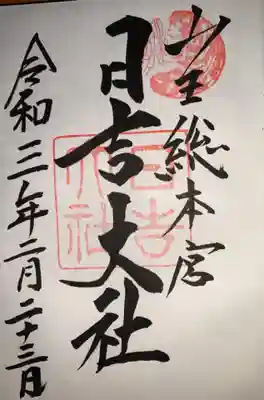 山王総本宮
日吉大社
令和三年二月二十三日
日吉
大社